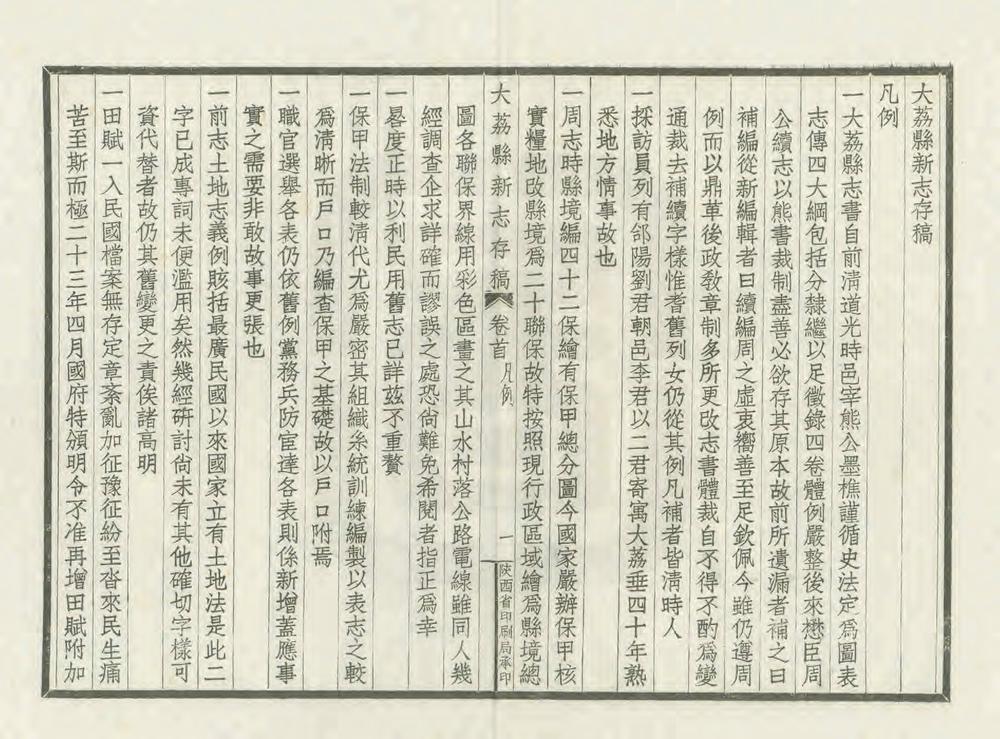 大荔縣新志存稿
凡例
一大荔縣志書自前淸道光時邑宰熊公墨樵謹循史法定爲圖表
志傳四大綱包括分隸繼以足徵錄四卷體例嚴整後來懋臣周
公續志以熊書裁制盡善必欲存其原本故前所遺漏者補之曰
補編從新編輯者曰續編周之虛衷嚮善至足欽佩今雖仍遵周
例而以鼎革後政敎章制多所更改志書體裁自不得不酌爲變
通裁去補續字樣惟耆舊列女仍從其例凡補者皆淸時人
一採訪員列有郃陽劉君朝邑李君以二君寄寓大荔垂四十年熟
悉地方情事故也
一周志時縣境編四十二保繪有保甲總分圖今國家嚴辦保甲核
實糧地改縣境爲二十聯保故特按照現行政區域繪爲縣境總
大荔縣新志存稿 卷首 凡例 一 陝西省印刷局承印
圖各聯保界線用彩色區畫之其山水村落公路電線雖同人幾
經調查企求詳確而謬誤之處恐尙難免希閱者指正爲幸
一晷度正時以利民用舊志已詳茲不重贅
一保甲法制較淸代尤爲嚴密其組織系統訓練編製以表志之較
爲淸晰而戶口乃編查保甲之基礎故以戶口附焉
一職官選舉各表仍依舊例黨務兵防宦達各表則係新增蓋應事
實之需要非敢故事更張也
一前志土地志義例賅括最廣民國以來國家立有土地法是此二
字已成專詞未便濫用矣然幾經硏討尙未有其他確切字樣可
資代替者故仍其舊變更之責俟諸高明
一田賦一入民國檔案無存定章紊亂加征豫征紛至沓來民生痛
苦至斯而極二十三年四月國府特頒明令不准再增田賦附加